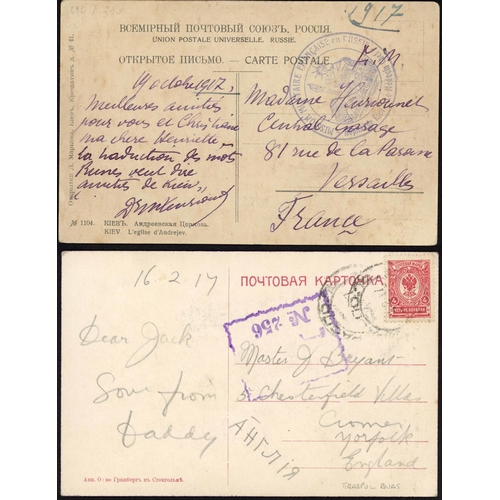 1917
ВСЕМІРНЫЙ ПОЧТОВЫЙ СОЮЗЪ, РОССІЯ.
UNION POSTALE UNIVERSELLE. RUSSIE.
ОТКРЫТОЕ ПИСЬМО. — CARTE POSTALE
F. M
19 octobre 1917
Meilleures amitiés
pour vous et Christiane
ma chere Henriette
la traduction des mots
Russes veut dire
amities de Kiew
Madame
Central Garage
81 rue de la Paroisse
Versailles
France
№ 1104. КІЕВЪ. Андреевская Церковь.
KIEV. L'eglise d'Andrejev.
16.2.17
ПОЧТОВАЯ КАРТОЧКА.
№ 256
Dear Jack
Love from
Daddy
Master J Bryant
5 Chesterfield Villas
Cromer
Norfolk
England
Англія
Акц. О-во Гранбергъ въ Стокгольмѣ.